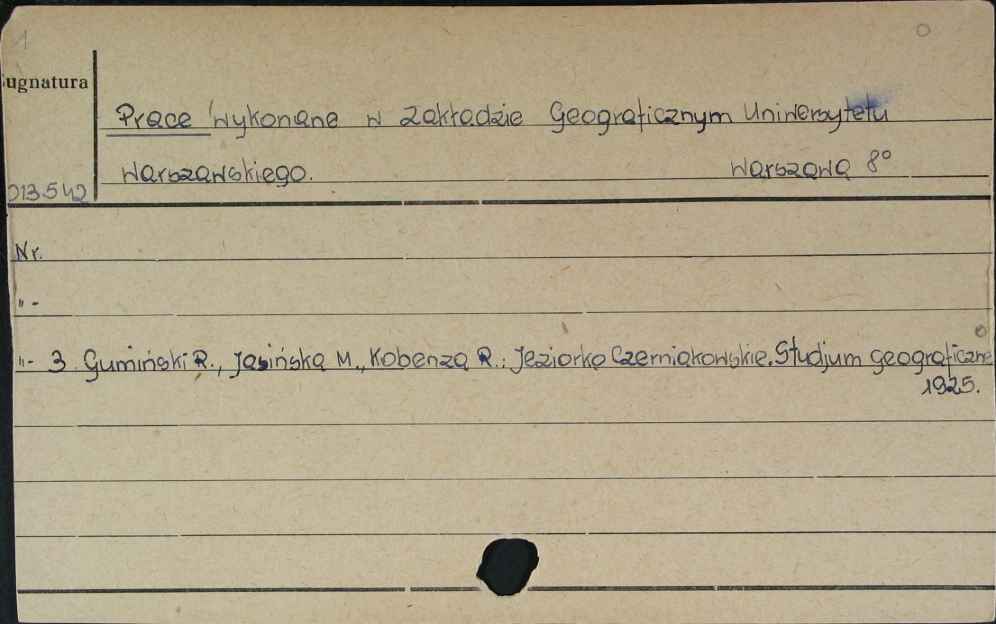 1
ugnatura
Prace wykonane w Zakładzie Geograficznym Uniwersytetu
Warszawskiego. Warszawa 8°
013.542
Nr.
"-
"- 3 Gumiński R., Jasińska M., Kobenza R.: Jeziorko Czerniakowskie. Studjum geograficzne
1925.